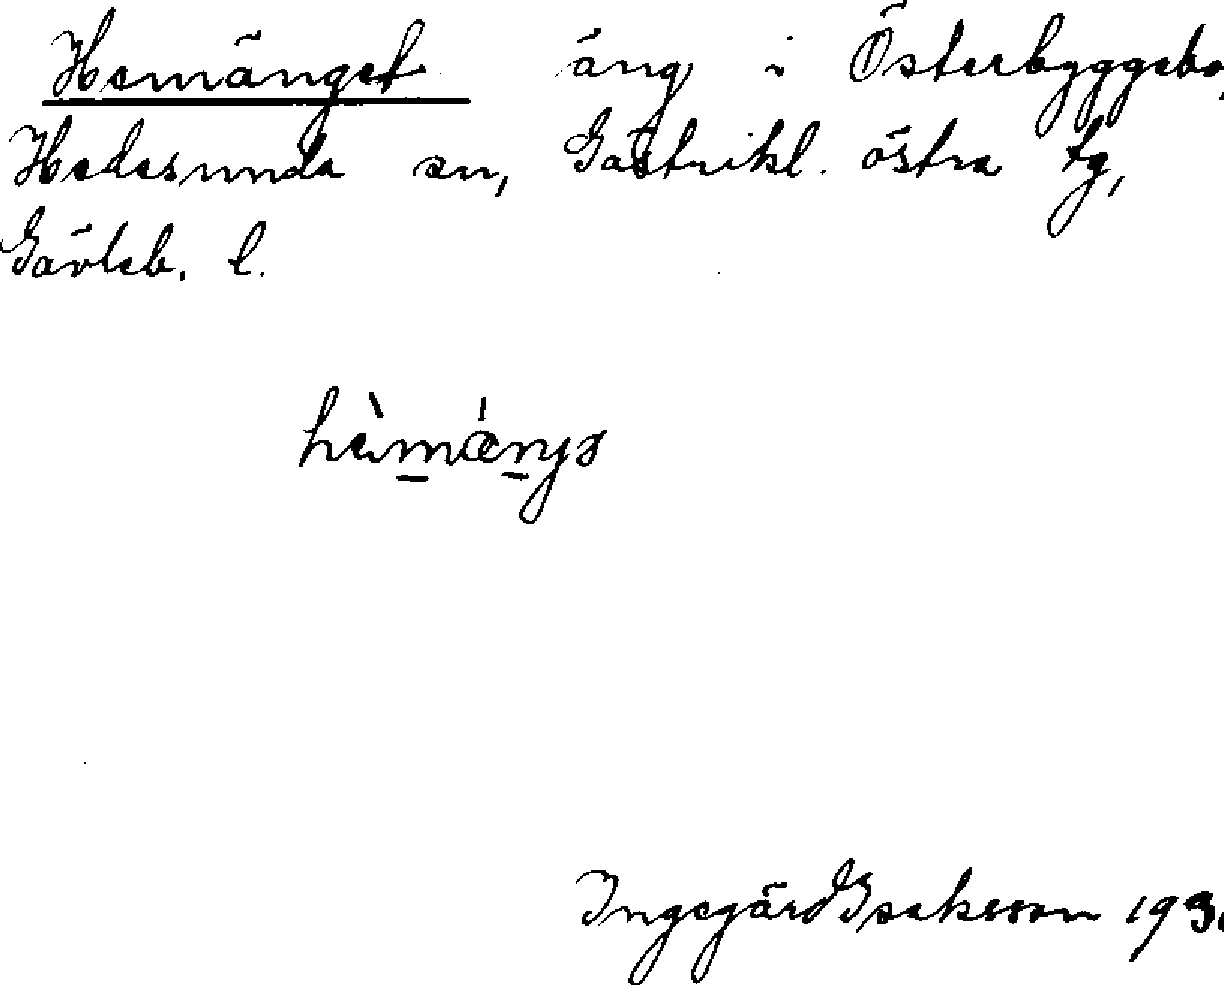 Hemänget äng i Österbyggebo,
Hedesunda sn, Gästrikl. östra tg,
Gävleb. l.
Ingegärd Isaksson